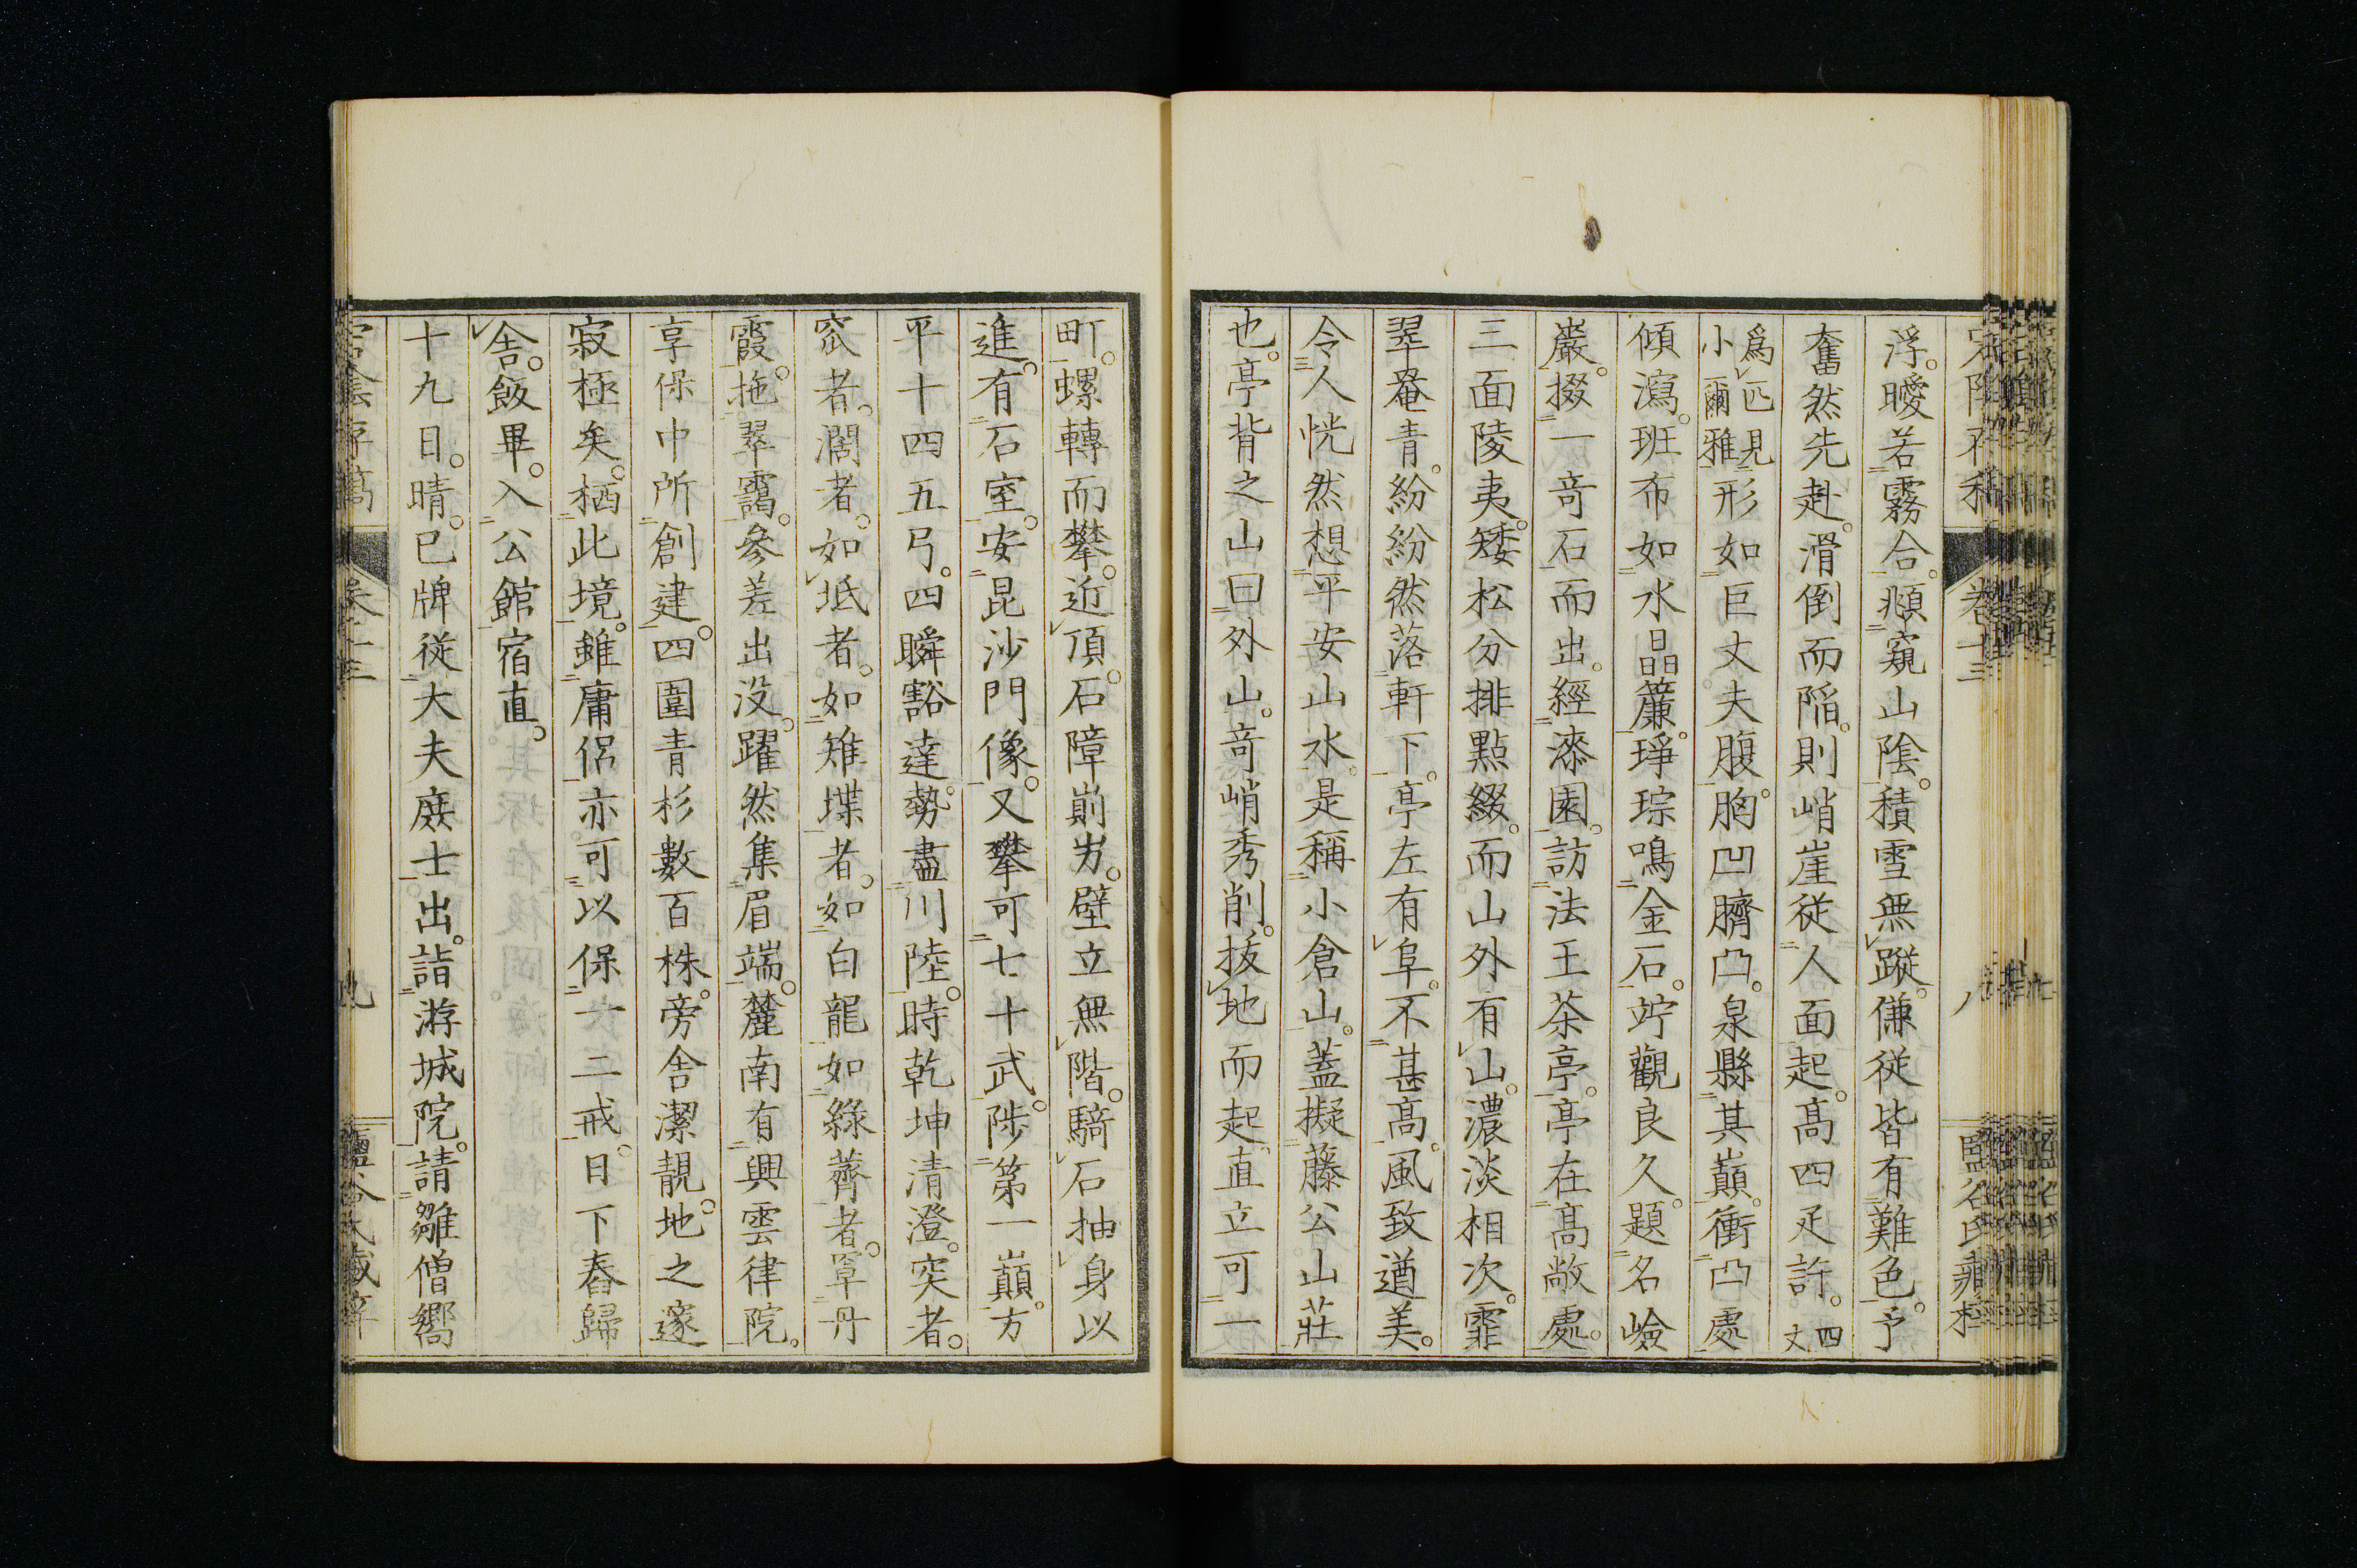 浮。曖若霧合。頫窺山陰。積雪無蹤。傔從皆有難色。予
奮然先赴。滑倒而陷。則峭崖從人面起。高四疋許。四丈
爲匹見小爾雅形如巨丈夫腹。胸凹臍凸。泉縣其巔。衝凸處
傾瀉。班布如水晶簾。琤琮鳴金石。竚觀良久。題名嶮
巖。掇一奇石而出。經漆園。訪法王茶亭。亭在高敞處。
三面陵夷。矮松分排點綴。而山外有山。濃淡相次。霏
翠罨青。紛紛然落軒下。亭左有阜。不甚高。風致遒美。
令人恍然想平安山水。是稱小倉山。蓋擬藤公山莊
也。亭背之山曰外山。奇峭秀削。拔地而起。直立可一
町。螺轉而攀。近頂。石障崱屴。壁立無階。騎石抽身以
進。有石室。安昆沙門像。又攀可七十武。陟第一巔。方
平十四五弓。四瞬豁達。勢盡川陸。時乾坤清澄。突者。
窊者。濶者。如坻者。如雉堞者。如白龍如綠薺者。罩丹
霞。拖翠靄。參差出没。躍然集眉端。麓南有興雲律院。
享保中所創建。四圍青杉數百株。旁舍潔靚。地之邃
寂極矣。栖此境。雖庸侶亦可以保一二戒。日下舂歸
舍。飯畢。入公館宿直。
十九日。晴。巳牌從大夫庶士出。詣游城院。請雛僧嚮